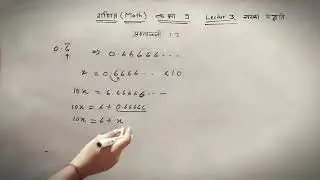 गणित (Math) कक्षा 9 Lectur 3 संख्या पद्धति
प्रश्नावली 1.3
0.6 ⇒ 0.66666---
x = 0.6666--- x10
10x = 6.66666---
10x = 6 + 0.66666
10x = 6 + x